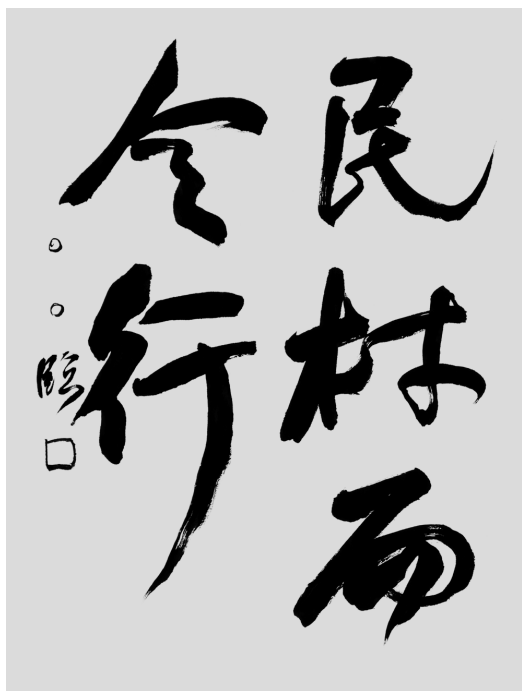 民村而
令行
。。臨□